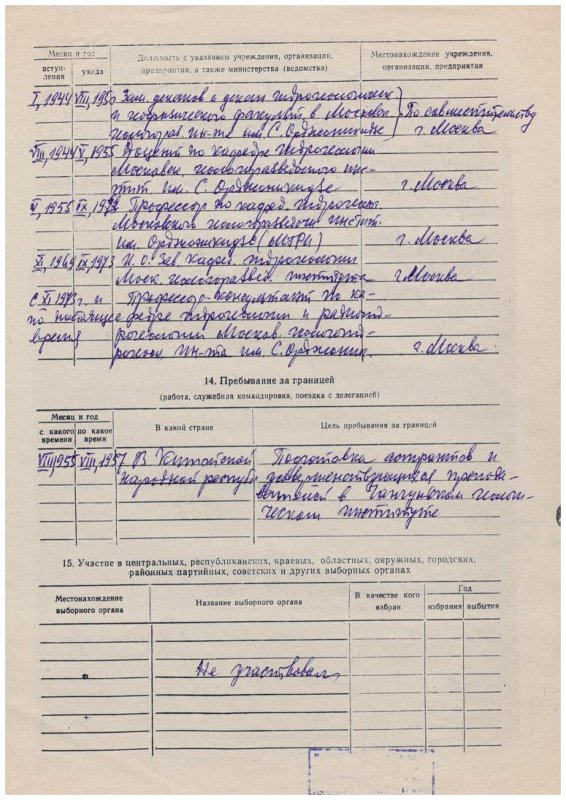 Месяц и год
Должность с указанием учреждения, организации, предприятия, а также министерства (ведомства)
Местонахождение учреждения, организации, предприятия
вступ-
ления
ухода
I, 1944 VIII, 1950 Зам. декана и декан гидрогеологическ
и геофизического факульт. в Московск } По совместительству
геологораз. ин-та им. С. Орджоникидзе г. Москва
VIII, 1944 V, 1955 Доцент по кафедре гидрогеологии
Московск. геологоразведочного ин-
ститут им. С. Орджоникидзе г. Москва
V, 1955 IX, 1973 Профессор по кафед. гидрогеолог.
Московского геологоразведочн институт.
им. Орджоникидзе (МГРИ) г. Москва
XI, 1969 IX, 1973 И. О. Зав. кафед. гидрогеологии
Моск. геологоразвед. института г. Москва
С XI 1973 г. и Профессор-консультант по ка-
по настоящее федре гидрогеологии и радиогид-
время рогеологии Москов. геологораз-
ин-та им. С. Орджоник. г. Москва
14. Пребывание за границей
(работа, служебная командировка, поездка с делегацией)
Месяц и год
В какой стране
Цель пребывания за границей
с какого
времени
по какое
время
VIII, 1955 VIII, 1957 В Китайской Подготовка аспирантов и
Народной республ усовершенствующихся препода-
вателей в Чанчуньском геологи-
ческом институте
15. Участие в центральных, республиканских, краевых, областных, окружных, городских,
районных партийных, советских и других выборных органах
Местонахождение
выборного органа
Название выборного органа
В качестве кого
избран
Год
избрания
выбытия
Не участвовал